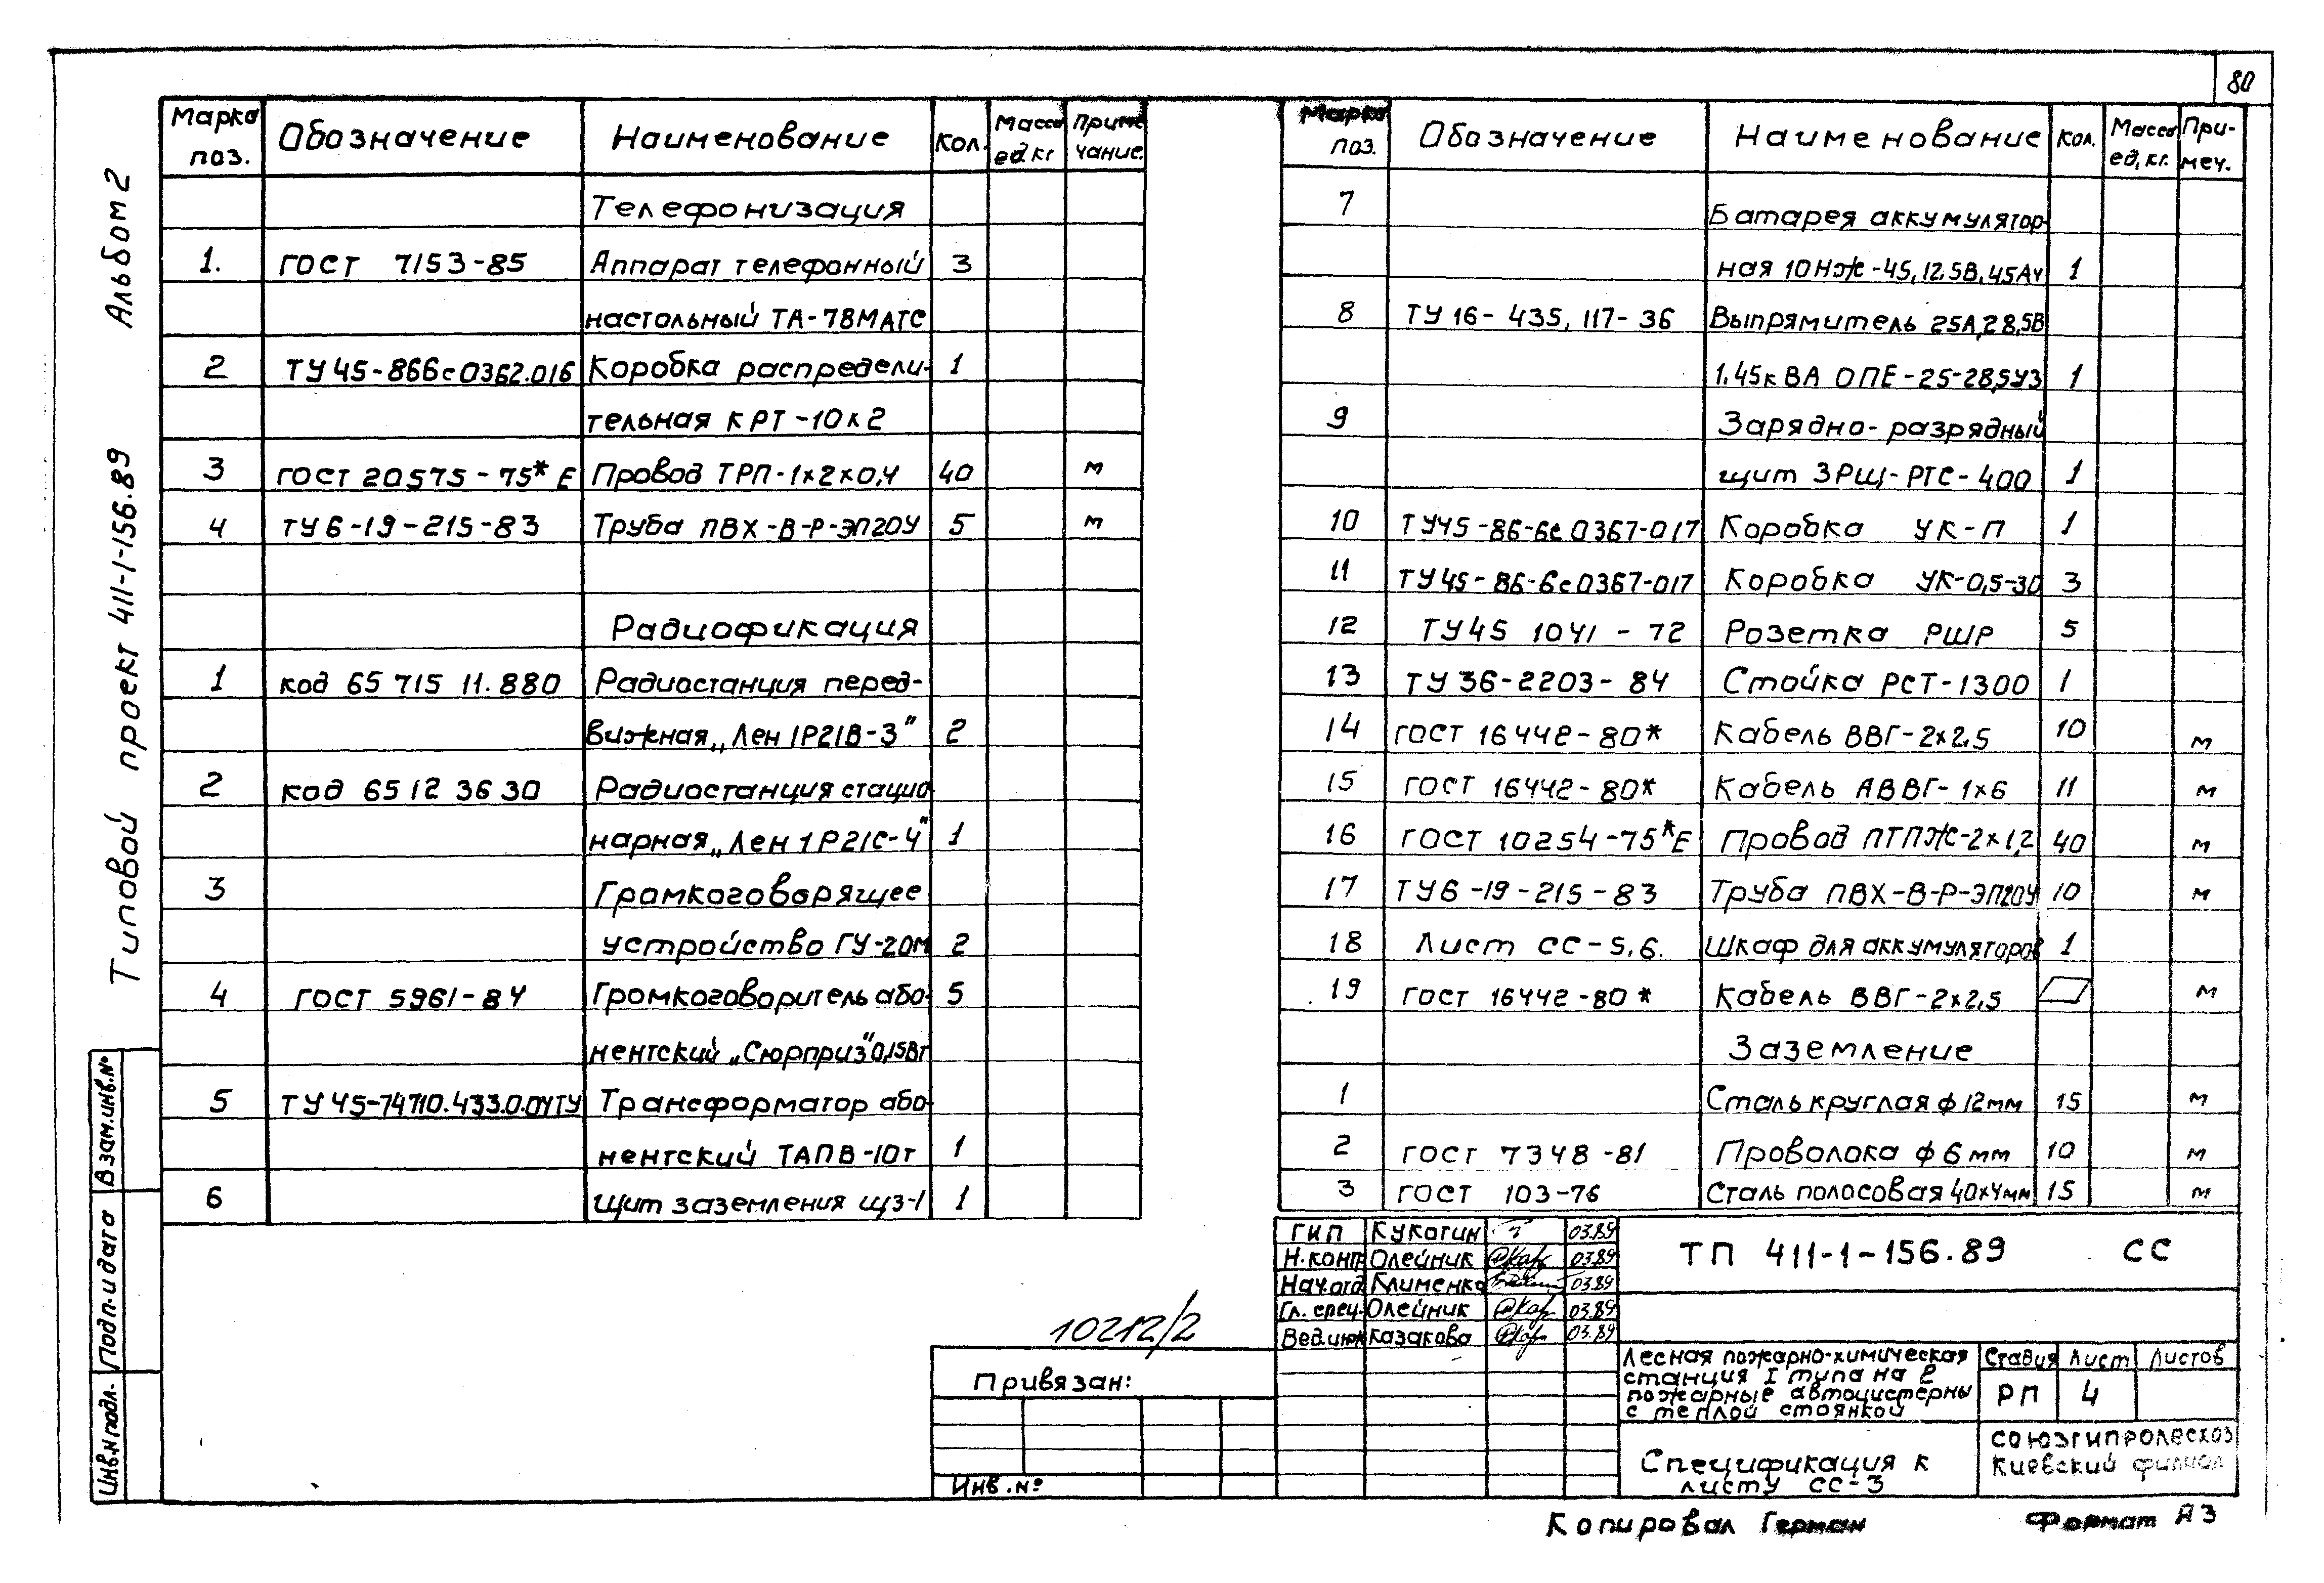 80
Альбом 2
Типовой проект 411-1-156.89
Взам.инв.№
Подп. и дата
Инв.№ подл.
Марка поз. Обозначение Наименование Кол. Масса ед.кг Приме чание.
Телефонизация
1. ГОСТ 7153-85 Аппарат телефонный 3
настольный ТА-78МАТС
2 ТУ45-866с0362.016 Коробка распредели-
1
тельная КРТ-10х2
3 ГОСТ 20575-75* Е Провод ТРП-1х2х0,4 40 м
4 ТУ6-19-215-83 Труба ПВХ-В-Р-ЭП20У 5 м
Радиофикация
1 код 65 715 11.880 Радиостанция перед-
вижная „Лен 1Р21В-3" 2
2 код 6512 3630 Радиостанция стацио-
нарная „Лен 1Р21С-4" 1
3 Громкоговорящее
устройство ГУ-20М 2
4 ГОСТ 5961-84 Громкоговоритель або- 5
нентский „Сюрприз" 0,15Вт
5 ТУ45-74710.433.0.04ТУ Трансформатор або-
нентский ТАПВ-10т 1
6 Щит заземления ЩЗ-1 1
Марка поз. Обозначение Наименование Кол. Масса ед,кг. При- меч.
7 Батарея аккумулятор-
ная 10НЖ-45,12.5В,45Ач 1
8 ТУ16-435,117-36 Выпрямитель 25А,28,5В
1.45кВА ОПЕ-25-28,5У3 1
9 Зарядно-разрядный
щит ЗРЩ-РТС-400 1
10 ТУ45-86-6с0367-017 Коробка УК-П 1
11 ТУ45-86-6с0367-017 Коробка УК-0,5-30 3
12 ТУ45 1041-72 Розетка РШР 5
13 ТУ36-2203-84 Стойка РСТ-1300 1
14 ГОСТ 16442-80* Кабель ВВГ-2х2,5 10 м
15 ГОСТ 16442-80* Кабель АВВГ-1х6 11 м
16 ГОСТ 10254-75*Е Провод ПТПЖ-2х1,2 40 м
17 ТУ6-19-215-83 Труба ПВХ-В-Р-ЭП20У 10 м
18 Лист СС-5,6. Шкаф для аккумуляторов 1
19 ГОСТ 16442-80* Кабель ВВГ-2х2,5 м
Заземление
1 Сталь круглая ф12мм 15 м
2 ГОСТ 7348-81 Проволока ф6мм 10 м
3 ГОСТ 103-76 Сталь полосовая 40х4мм 15 м
ГИП Кукотин 03.89
Н.контр Олейник 03.89
Нач.отд Клименко 03.89
Гл. спец. Олейник 03.89
Вед.инж Казакова 03.89
ТП 411-1-156.89 СС
Лесная пожарно-химическая
станция I типа на 2
пожарные автоцистерны
с теплой стоянкой
Стадия Лист Листов
РП 4
Спецификация к
листу СС-3
СОЮЗГИПРОЛЕСХОЗ
Киевский филиал
10212/2
Привязан:
Инв.№
Копировал Герман
Формат А3